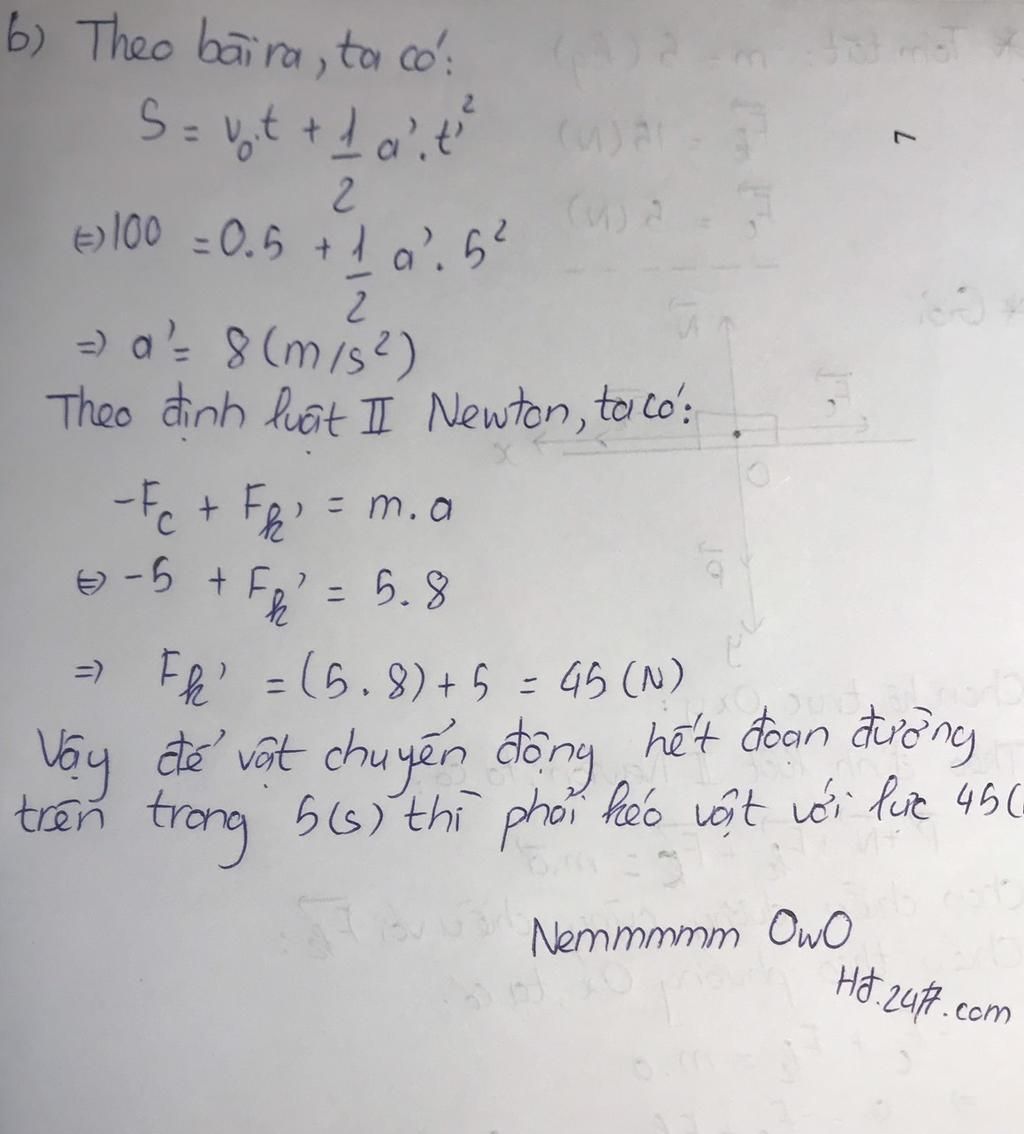 b) Theo bài ra, ta có:
S = v₀.t + 1/2 a'.t'²
⇔ 100 = 0.5 + 1/2 a'. 5²
⇒ a' = 8 (m/s²)
Theo định luật II Newton, ta có:
-Fc + Fk' = m.a
⇔ -5 + Fk' = 5.8
⇒ Fk' = (5.8)+5 = 45 (N)
Vậy để vật chuyển động hết đoạn đường
trên trong 5(s) thì phải kéo vật với lực 45(
Nemmmmm OwO
Hđ.247.com